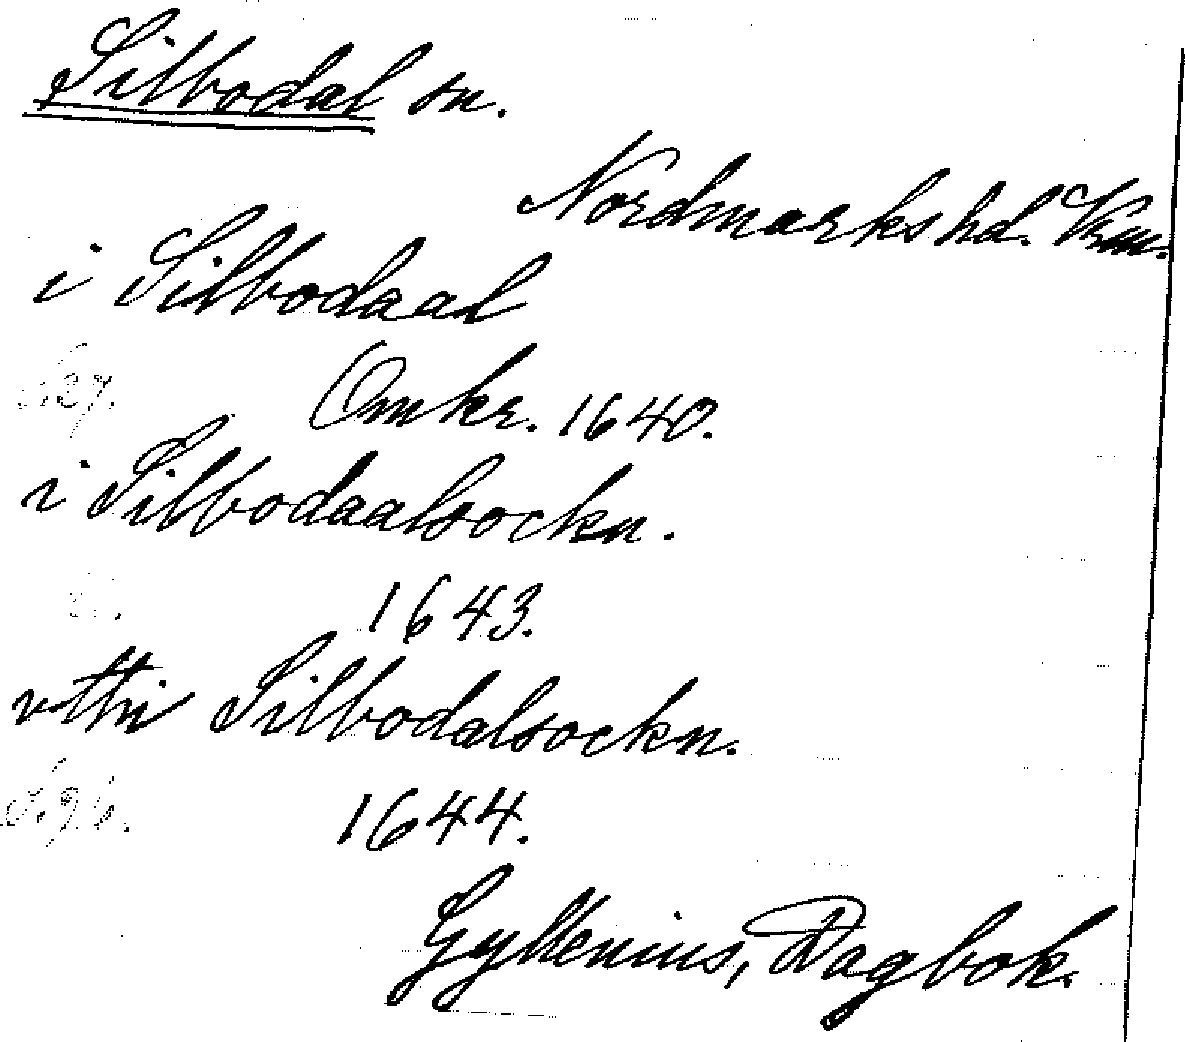 Silbodal sn.
Nordmarks hd. Vrm.
i Silbodaal
S. 27. Omkr. 1640.
i Silbodaalsockn.
1643.
vthi Silbodalsockn.
1644.
Gyllenius, Dagbok.